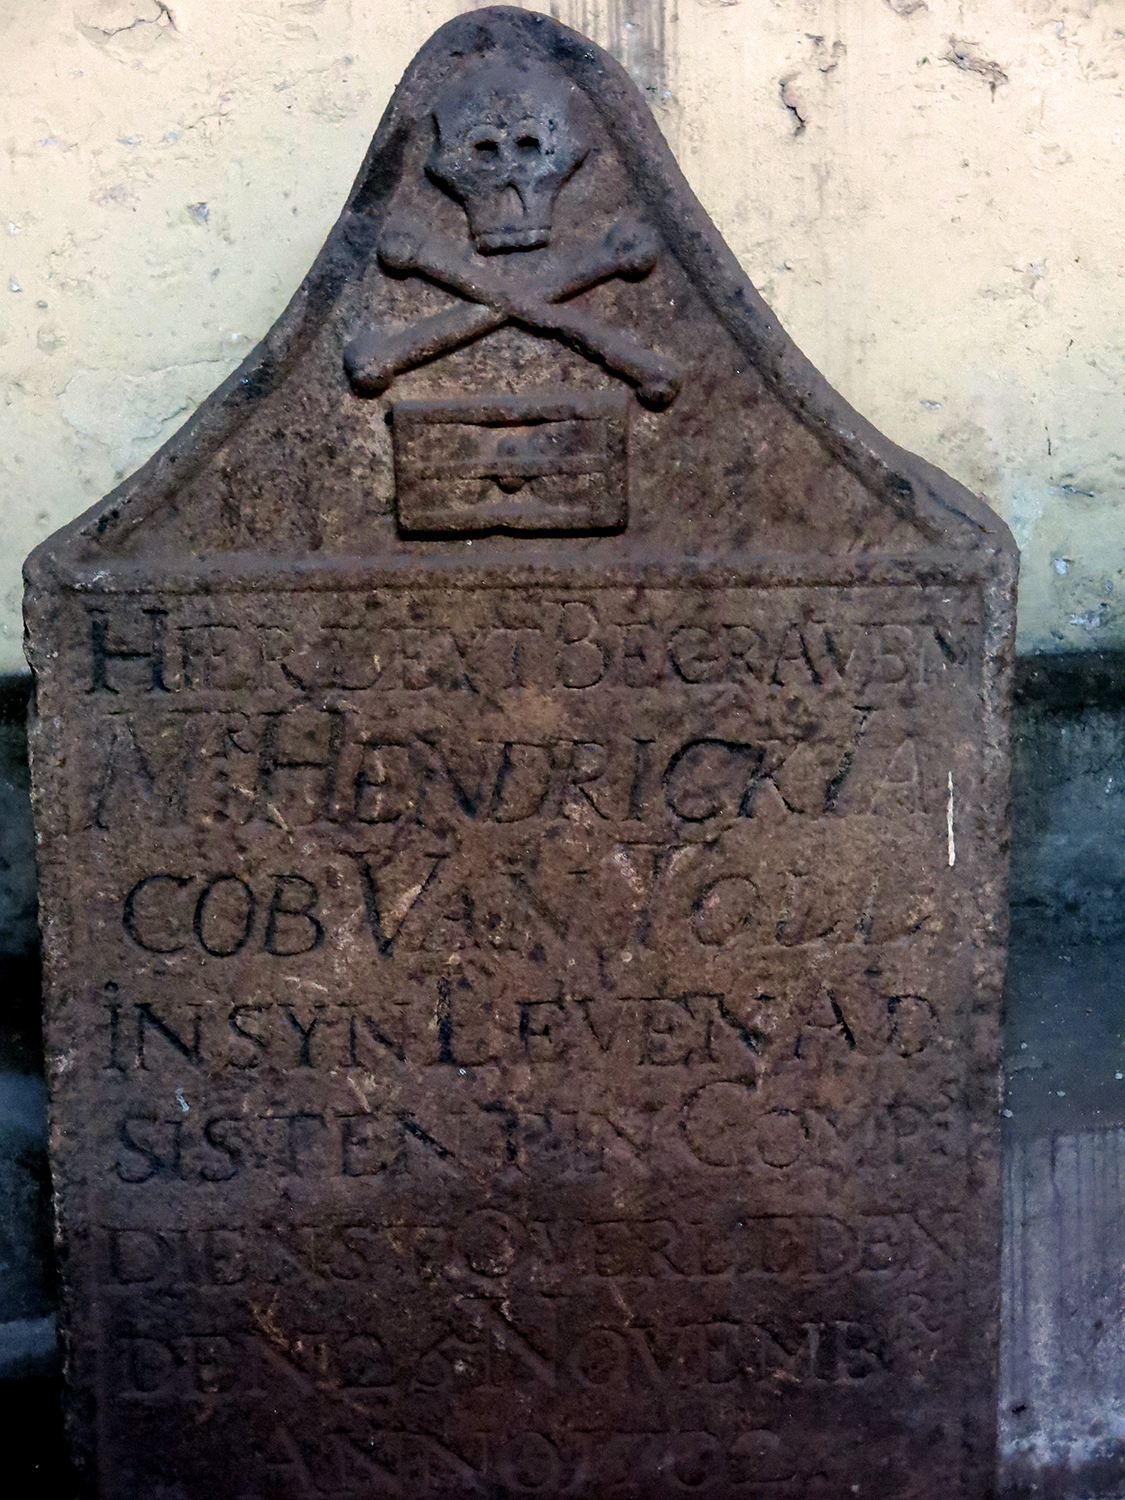 HIER LEXT BEGRAVEN
Mr HENDRICK IA
COB VAN TOLL
IN SYN LEVEN AD
SISTENT IN COMPs
DIENST OVERLEDEN
DEN 25 NOVEMBR
ANNO 1702